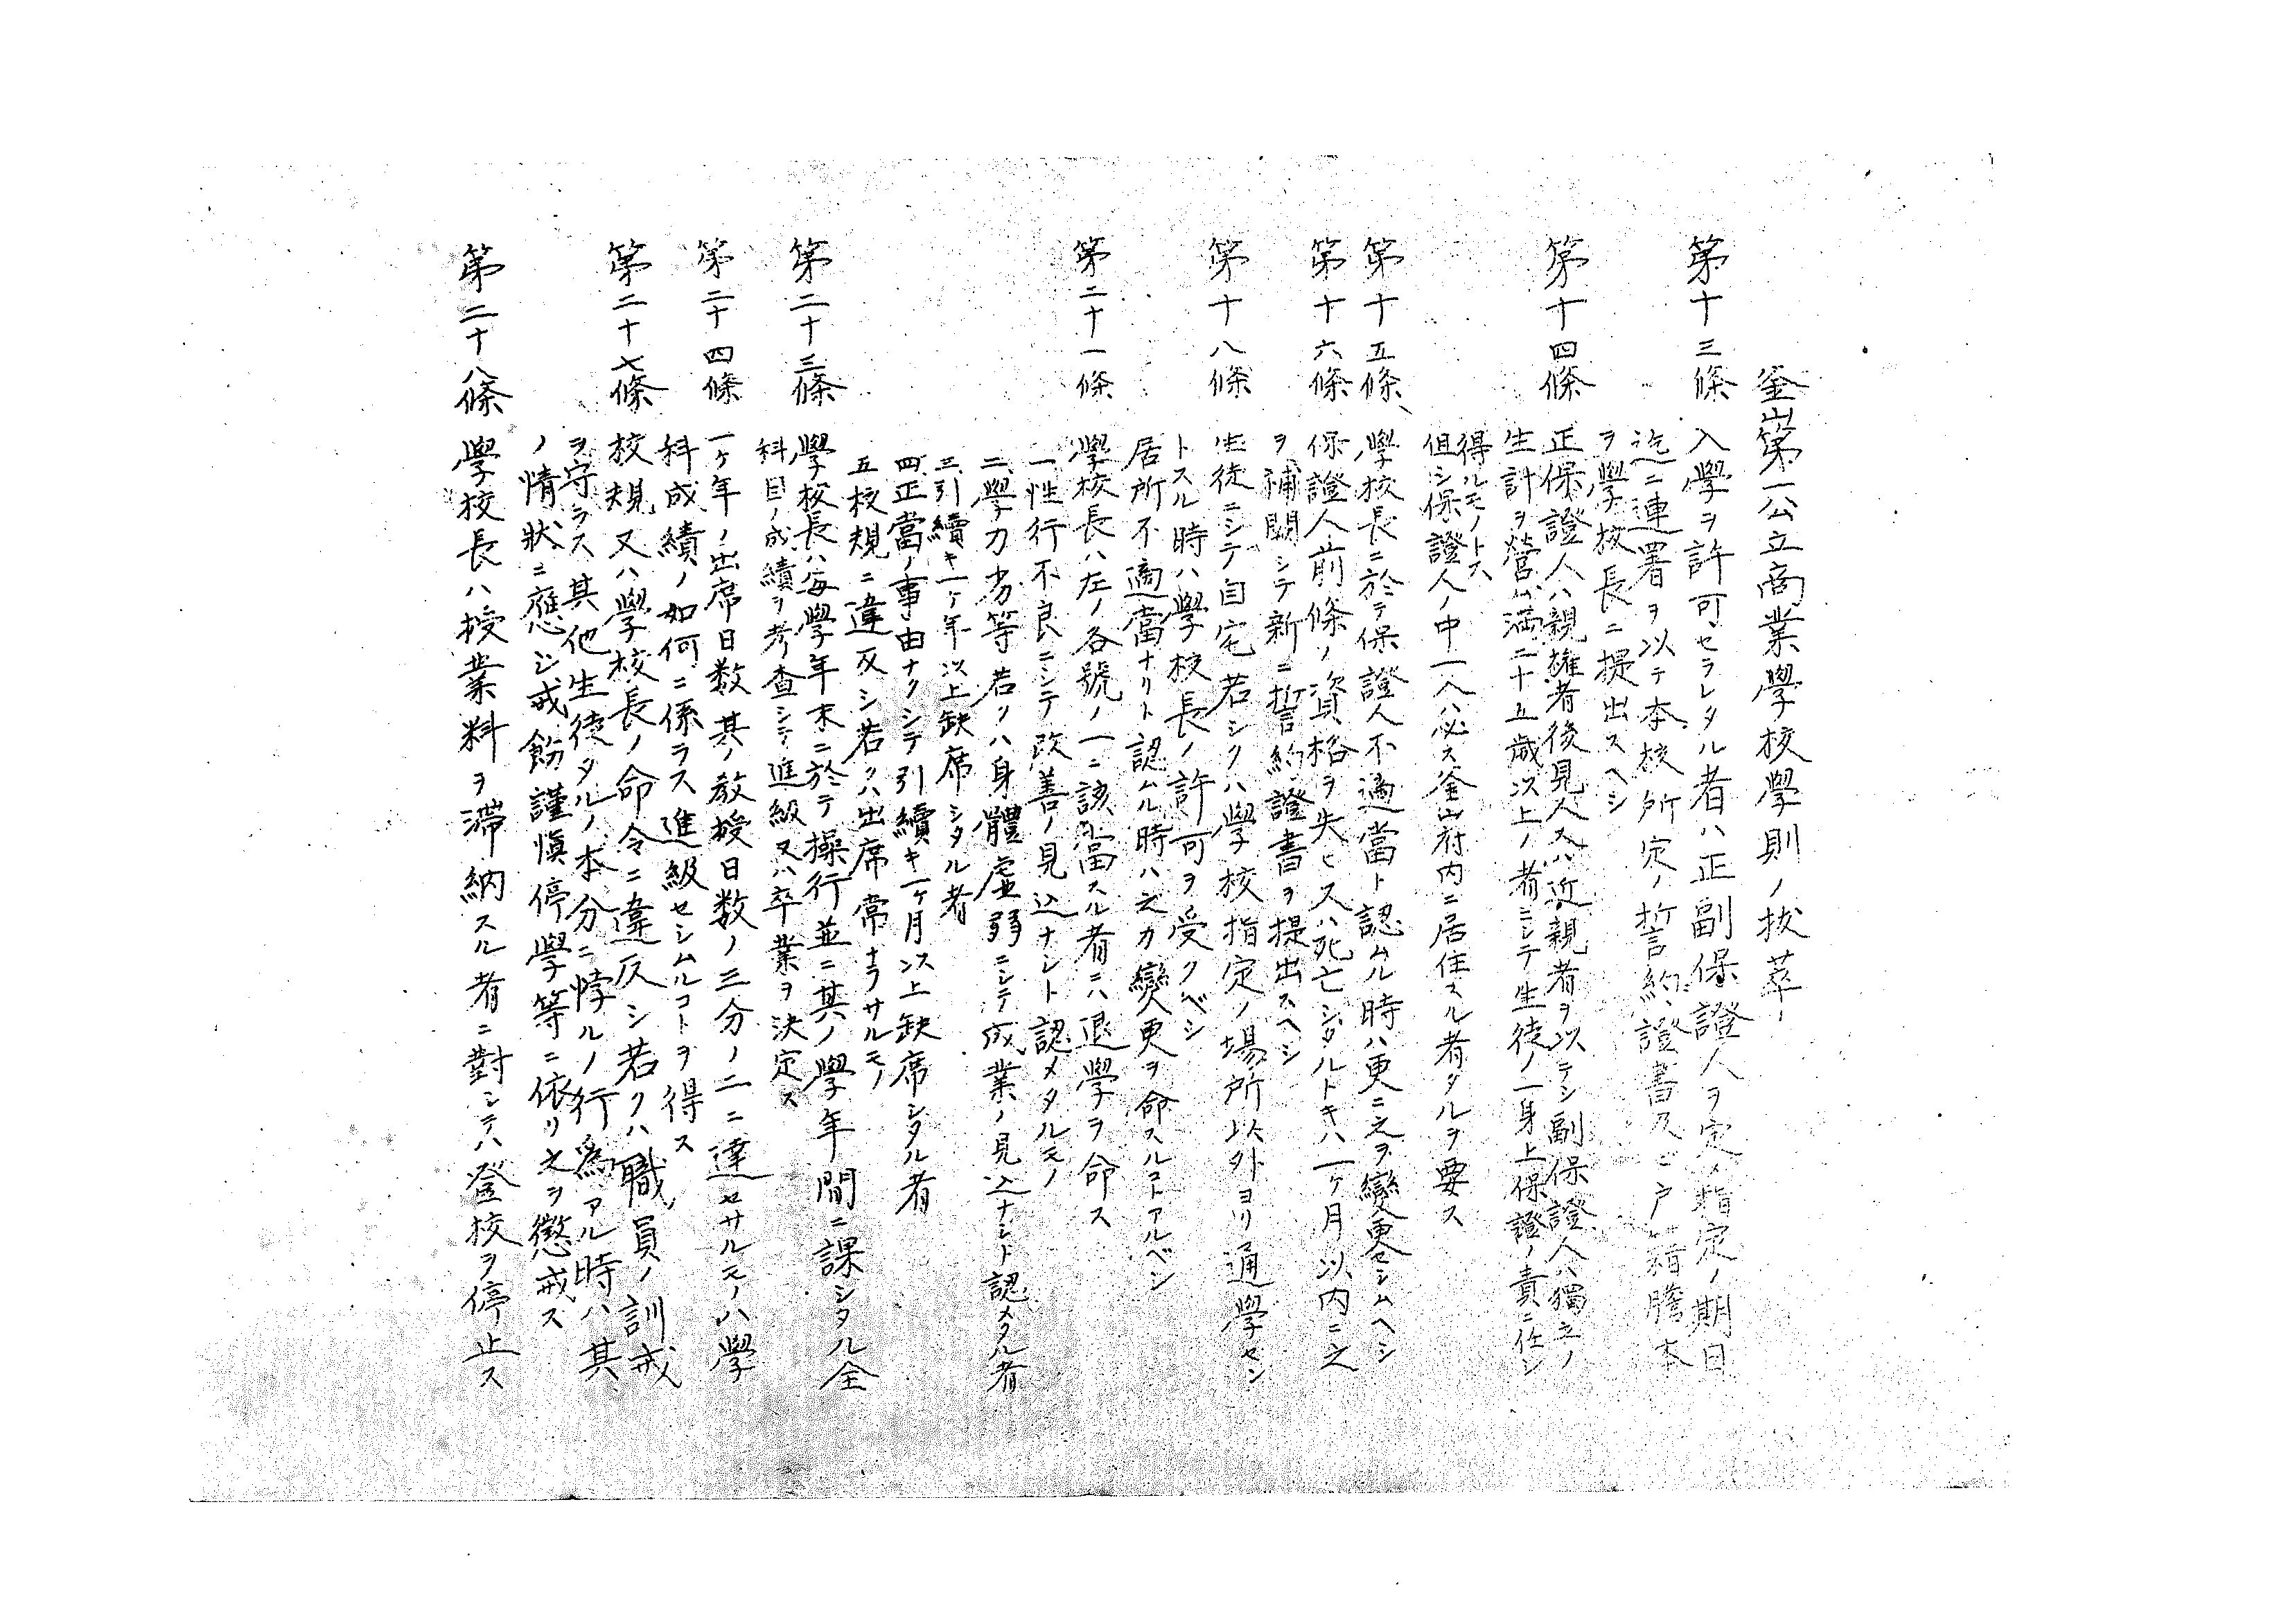 釜山第一公立商業學校學則ノ抜萃
第十三條 入學ヲ許可セラレタル者ハ正副保證人ヲ定メ指定ノ期日
迄ニ連署ヲ以テ本校所定ノ誓約證書及ビ戸籍謄本
ヲ學校長ニ提出スヘシ
第十四條 正保證人ハ親権者後見人又ハ近親者ヲ以テシ副保證人ハ獨立ノ
生計ヲ營ム満二十五歳以上ノ者ニシテ生徒ノ一身上保證ノ責ニ任シ
得ルモノトス
但シ保證人ノ中一人ハ必ス釜山府内ニ居住スル者タルヲ要ス
第十五條 學校長ニ於テ保證人不適當ト認ムル時ハ更ニ之ヲ變更セシムヘシ
第十六條 保證人前條ノ資格ヲ失ヒ又ハ死亡シタルトキハ一ヶ月以内ニ之
ヲ補闕シテ新ニ誓約證書ヲ提出スヘシ
第十八條 生徒ニシテ自宅若シクハ學校指定ノ場所以外ヨリ通學セン
トスル時ハ學校長ノ許可ヲ受クベシ
居所不適當ナリト認ムル時ハ之カ變更ヲ命スルコトアルベシ
第二十一條 學校長ハ左ノ各號ノ一ニ該當スル者ニハ退學ヲ命ス
一性行不良ニシテ改善ノ見込ナシト認メタルモノ
二學力劣等若クハ身體虚弱ニシテ成業ノ見込ナシト認メタル者
三引續キ一ヶ年以上缺席シタル者
四正當ノ事由ナクシテ引續キ一ヶ月以上缺席シタル者
五校規ニ違反シ若クハ出席常ナラサルモノ
第二十三條 學校長ハ毎學年末ニ於テ操行並ニ其ノ學年間ニ課シタル全
科目ノ成績ヲ考査シテ進級又ハ卒業ヲ決定ス
第二十四條 一ヶ年ノ出席日数其ノ教授日数ノ三分ノ二ニ達セサルモノハ學
科成績ノ如何ニ係ラス進級セシムルコトヲ得ス
第二十七條 校規又ハ學校長ノ命令ニ違反シ若クハ職員ノ訓戒
ヲ守ラス其他生徒タルノ本分ニ悖ルノ行為アル時ハ其
ノ情状ニ應シ戒飭謹慎停學等ニ依リ之ヲ懲戒ス
第二十八條 學校長ハ授業料ヲ滞納スル者ニ對シテハ登校ヲ停止ス